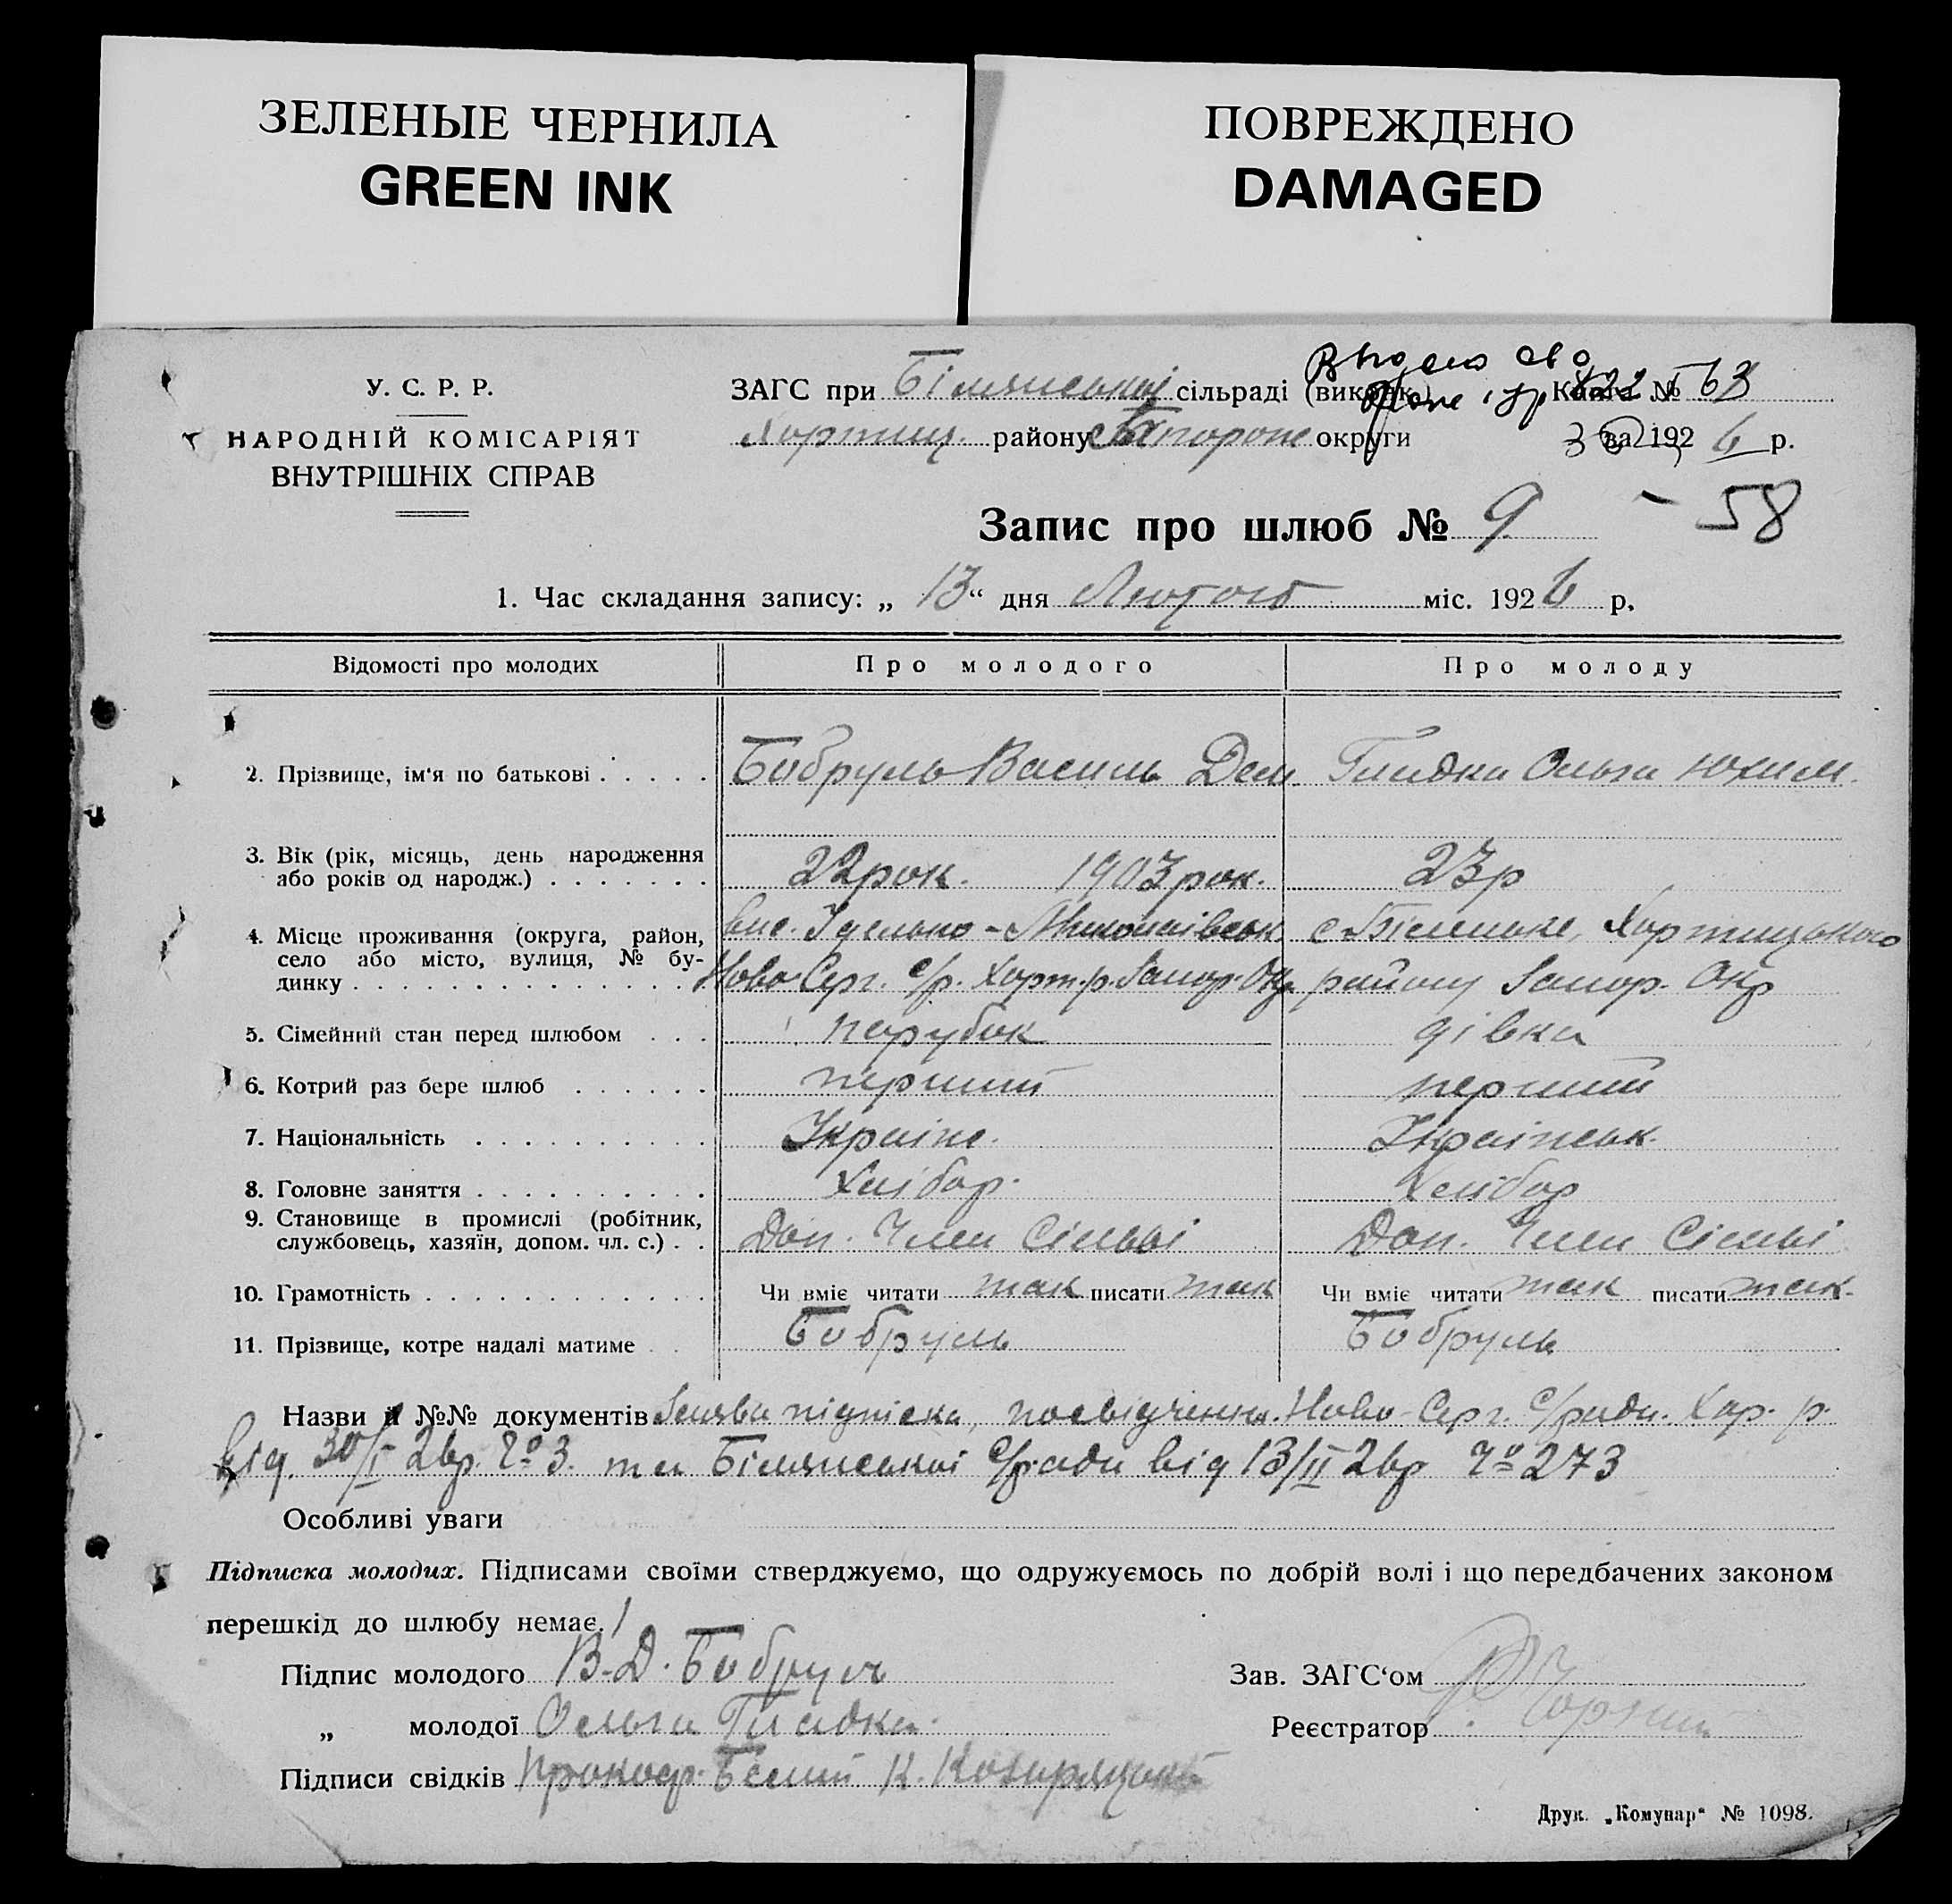 ЗЕЛЕНЫЕ ЧЕРНИЛА
GREEN INK
ПОВРЕЖДЕНО
DAMAGED
У. С. Р. Р.
НАРОДНІЙ КОМІСАРІЯТ
ВНУТРІШНІХ СПРАВ
ЗАГС при Білянській сільраді (викон Книга № 63
Хортиц. району Запороже округи за 1926 р.
Запис про шлюб № 9 - 58
1. Час складання запису: „ 13 “ дня Лютого міс. 1926 р.
Відомості про молодих Про молодого Про молоду
2. Прізвище, ім'я по батькові Бобруль Василь Дем. Гладка Ольга Юхим.
3. Вік (рік, місяць, день народження
або років од народж.) 22 рок. 1903 рок. 23 р
4. Місце проживання (округа, район, вис. Удельно-Миколаївськ. с. Біленьке, Хортицького
село або місто, вулиця, № бу-
динку Ново-Серг. с/р. Хорт. р. Запор. Окр. району Запор. Окр
5. Сімейний стан перед шлюбом парубок дівка
6. Котрий раз бере шлюб перший перший
7. Національність Україне. Українськ.
8. Головне заняття Хлібор. Хлібор
9. Становище в промислі (робітник,
службовець, хазяїн, допом. чл. с.) Доп. Член Сімьї Доп. Член Сімьї
10. Грамотність Чи вміє читати так писати так Чи вміє читати так писати так.
11. Прізвище, котре надалі матиме Бобруль Бобруль
Назви й №№ документів Заява підписка, посвідчення. Ново-Серг. с/ради. Хор. р.
від. 30/I 26р. №3. та Білянської с/ради від 13/II 26р № 273
Особливі уваги
Підписка молодих. Підписами своїми стверджуємо, що одружуємось по добрій волі і що передбачених законом
перешкід до шлюбу немає.
Підпис молодого В. Д. Бобруль Зав. ЗАГС‘ом
„ молодої Ольга Гладка. Реєстратор
Підписи свідків Прокоф. Білий К.
Друк. „Комунар“ № 1098.